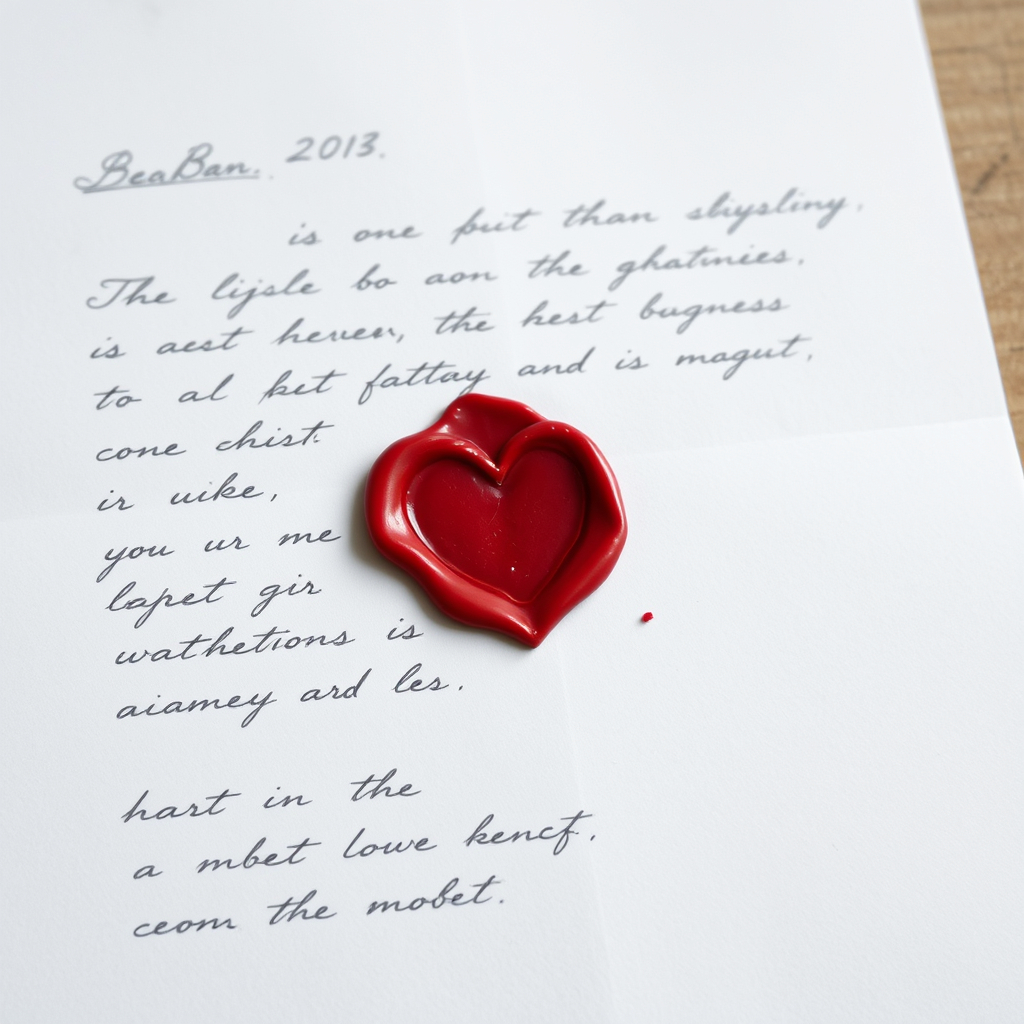 BeaBan. 2013.
is one puit than sbiysliny.
The lijsle bo aon the ghatinies.
is aest heven, the hest bugness
to al ket fattay and is magut.
cone chist
ir uike,
you ur me
lapet gir
wathetions is
aiamey ard les.
hart in the
a mbet lowe kencf.
ceom the mobet.